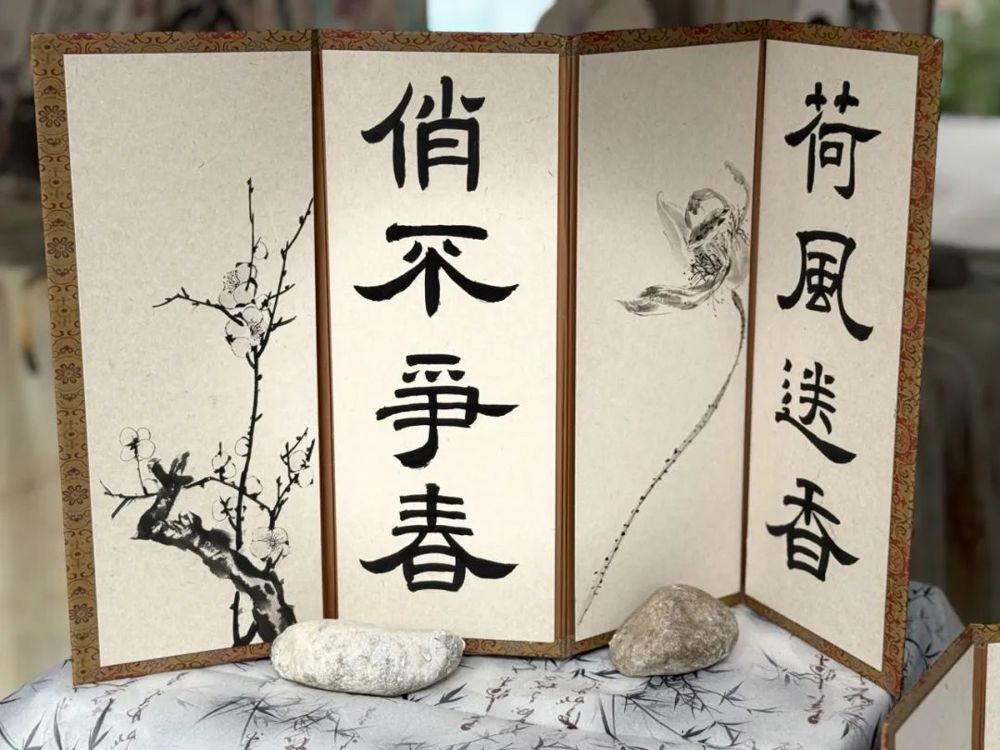 荷風送香
俏不爭春